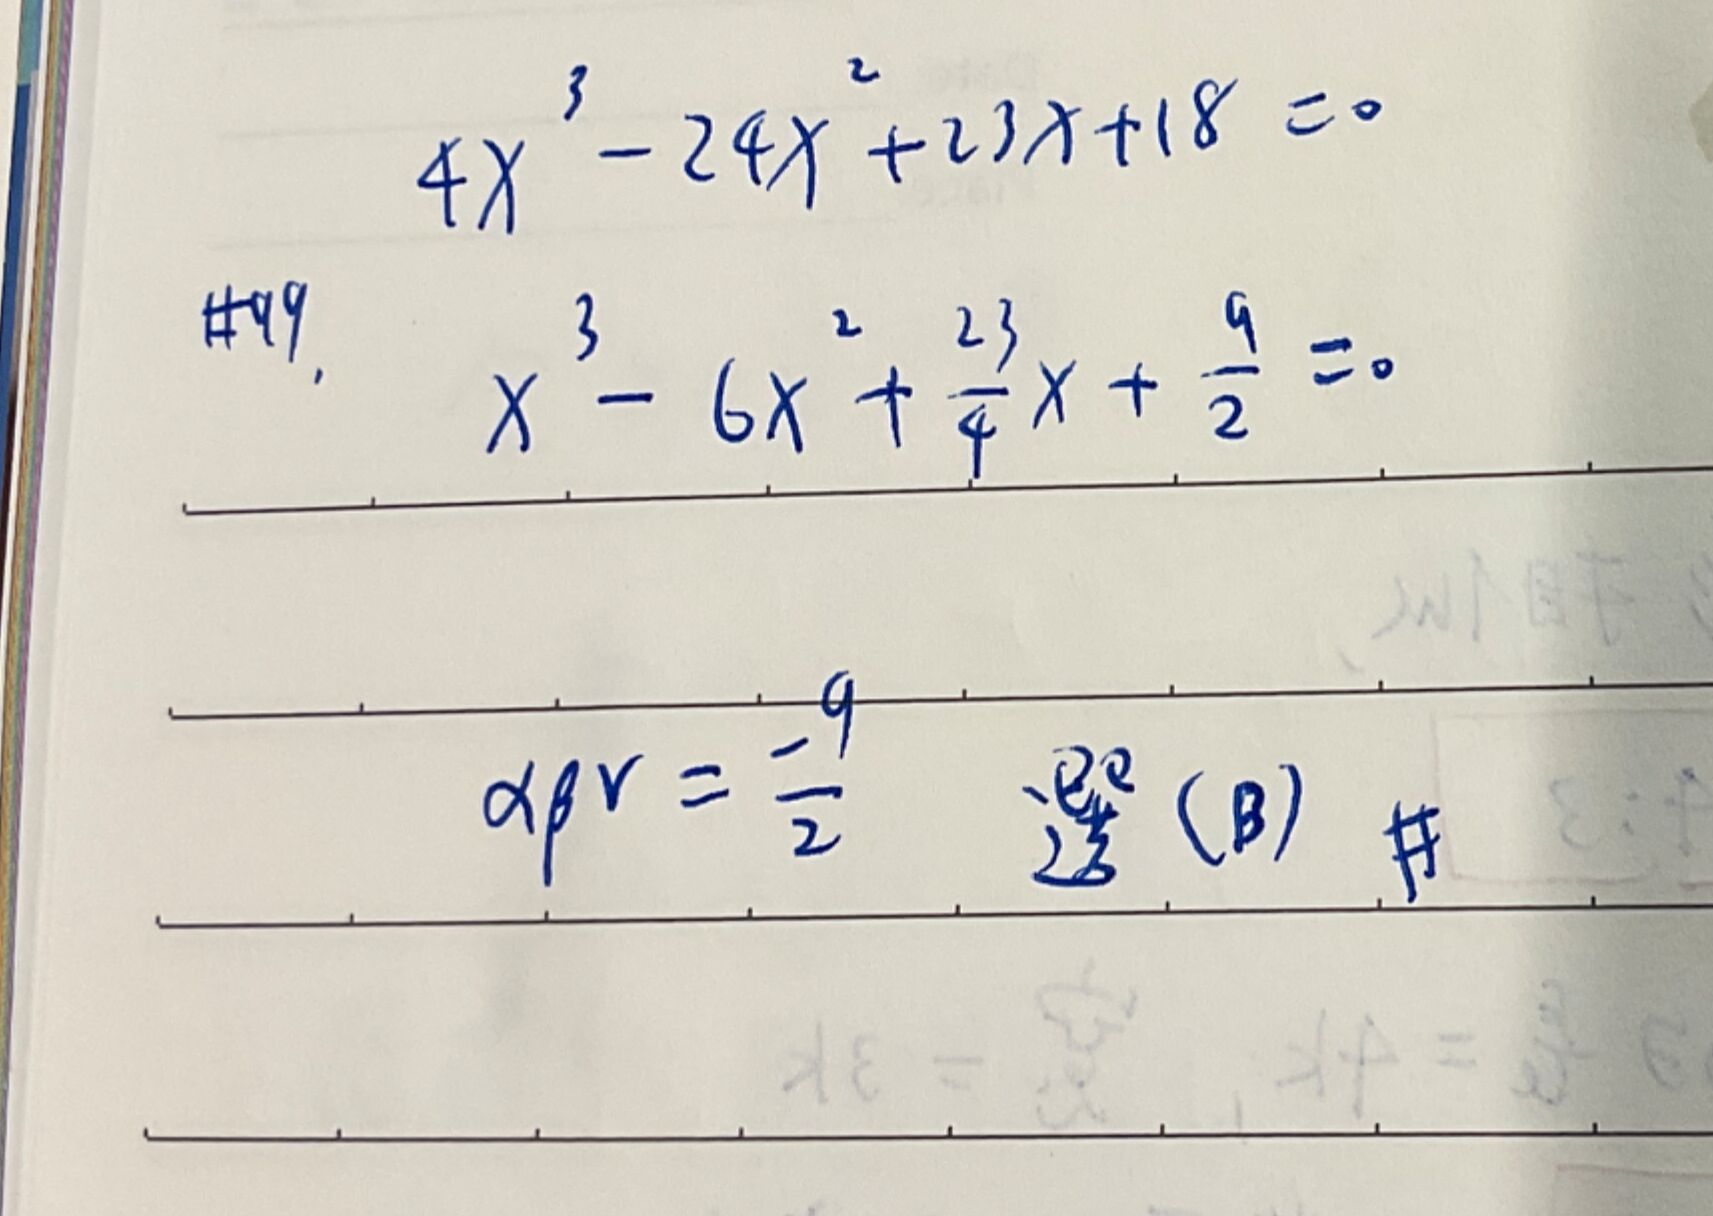 4x³ - 24x² + 23x + 18 = 0
#99. x³ - 6x² + 23/4 x + 9/2 = 0
αβr = -9/2 選 (B) #
4:3
= 4k, = 3k